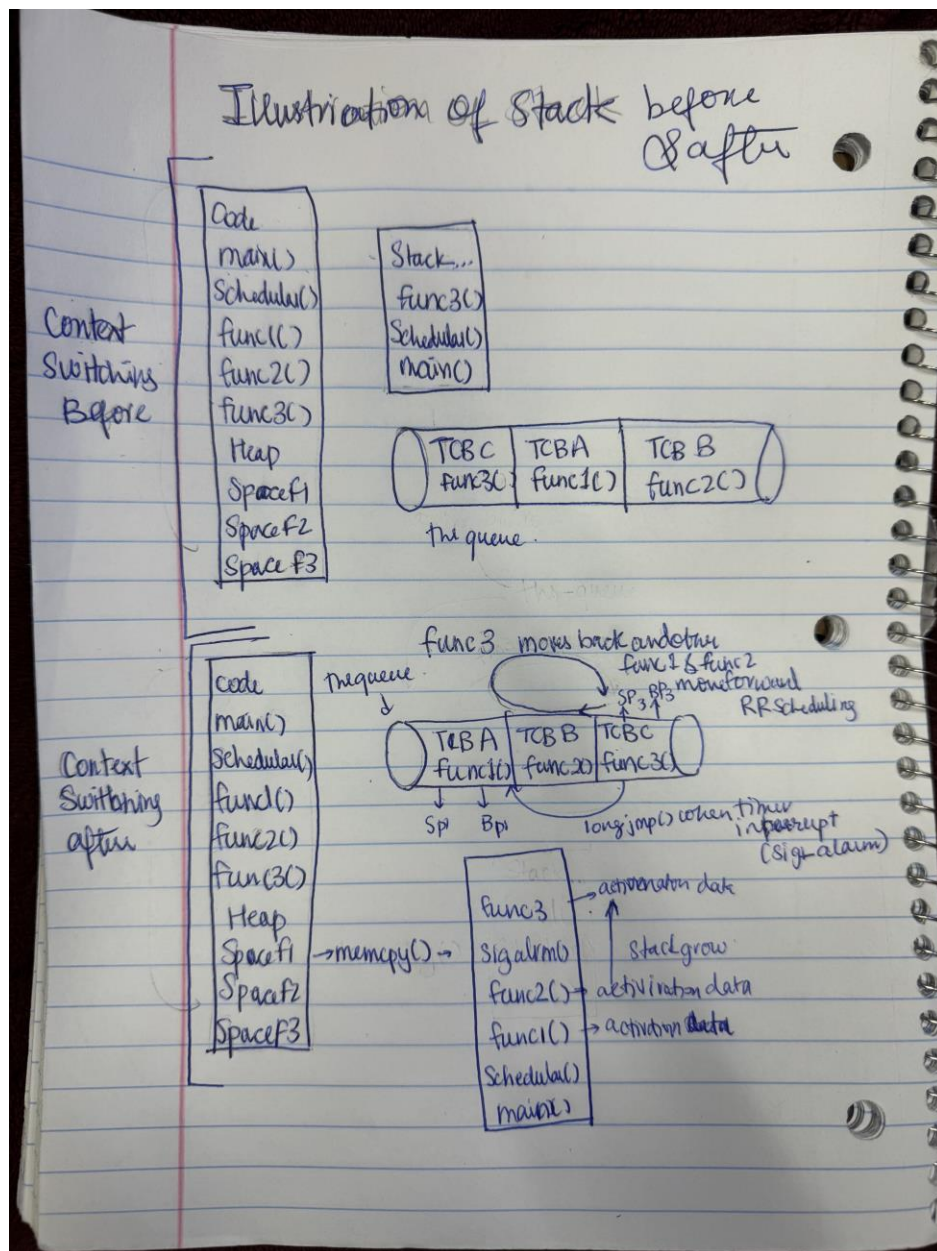 Illustriation of Stack before
& after
Context
Switching
Before
Code
main()
Schedular()
func1()
func2()
func3()
Heap
Space f1
Space f2
Space f3
Stack...
func3()
Schedular()
main()
TCB C
func3()
TCB A
func1()
TCB B
func2()
the queue.
Context
Switching
after
Code
main()
Schedular()
func1()
func2()
func(3()
Heap
Space f1
Space f2
Space F3
the queue.
func 3 moves back and other
func 1 & func 2
move forward
RR Scheduling
SP3 BP3
TCB A
func1()
TCB B
func2()
TCB C
func3()
Sp1 Bp1
longjmp() when timer
(Sig-alarm)
→memcpy()→
func3
Sigalrm()
func2()
func1()
Schedular()
main()
data
Stack grow
data
activation data